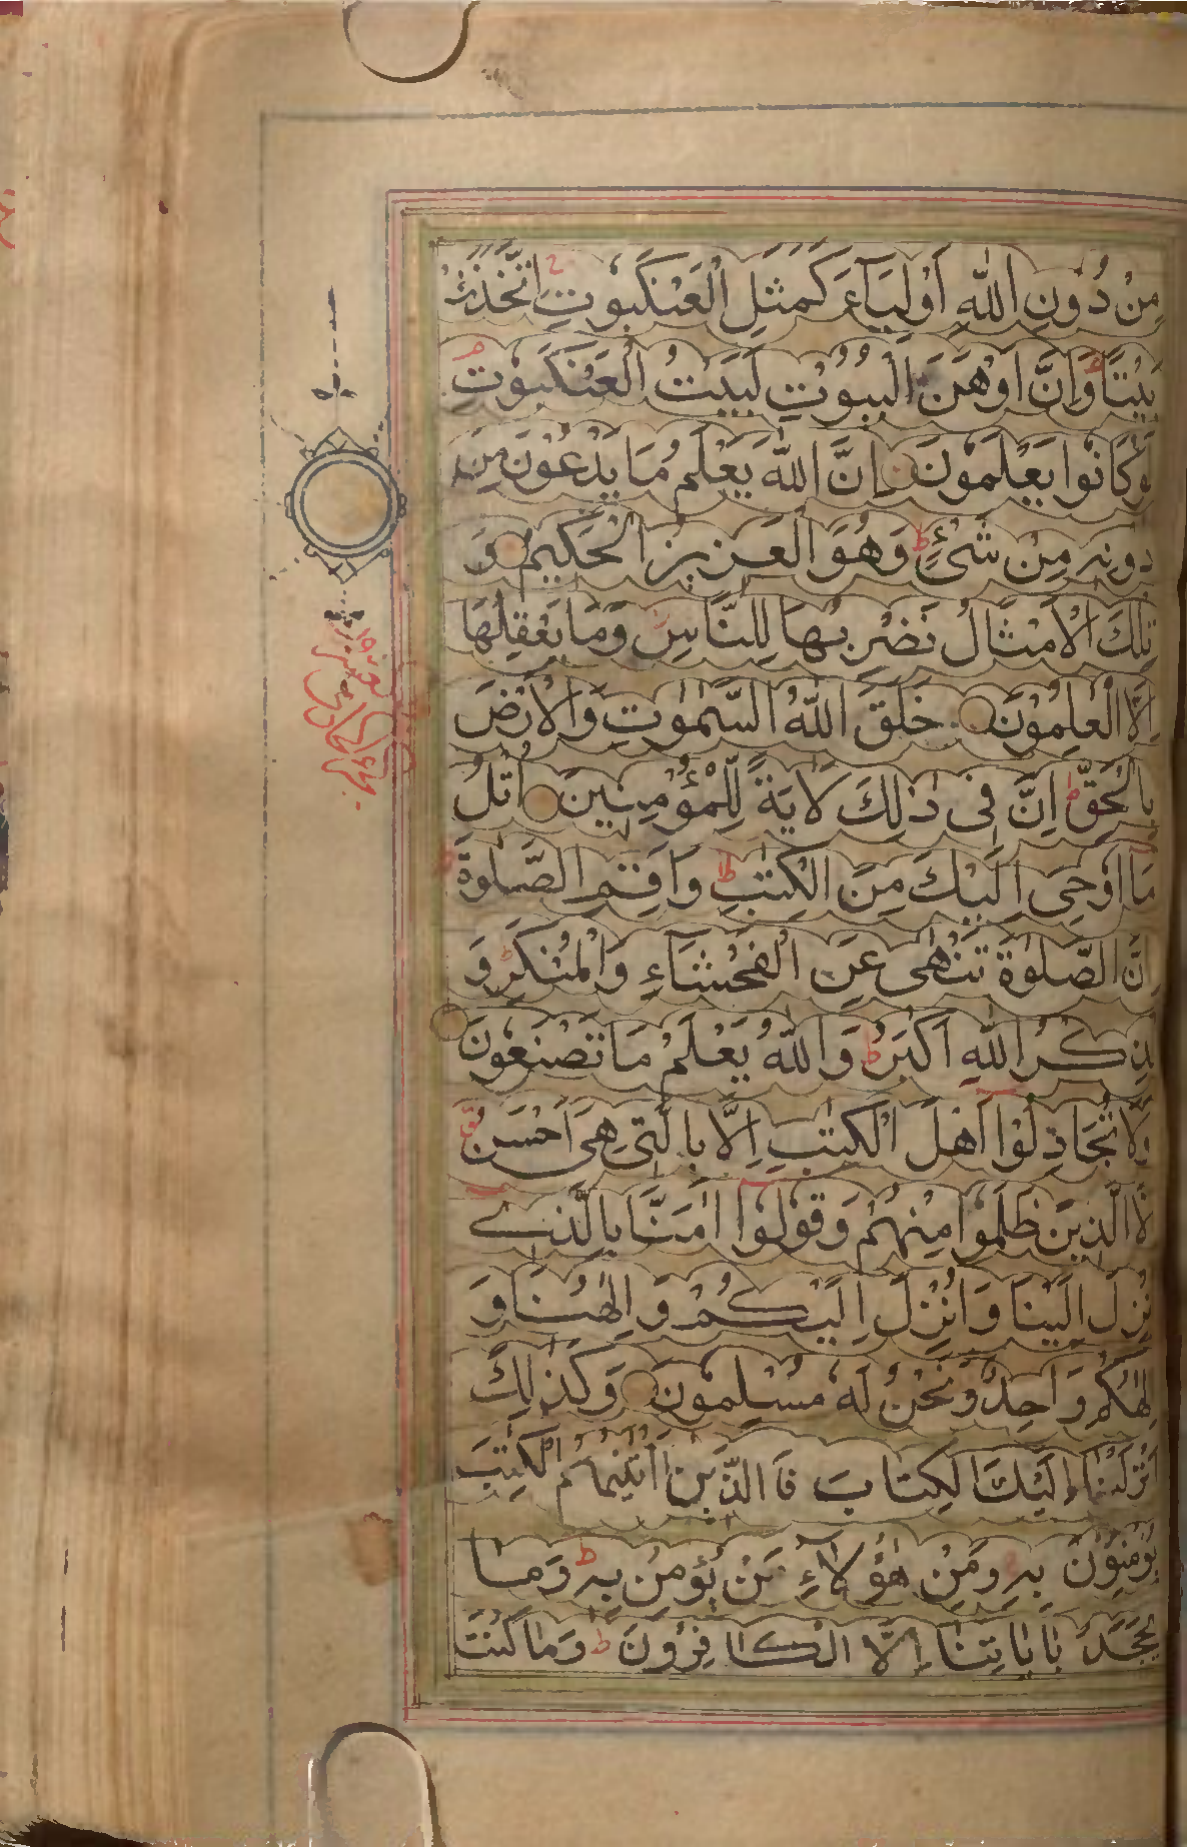 مِنْ دُونِ اللّٰهِ اَوْلِيَآءَ كَمَثَلِ الْعَنْكَبُوتِ اتَّخَذَتْ
بَيْتًا وَاِنَّ اَوْهَنَ الْبُيُوْتِ لَبَيْتُ الْعَنْكَبُوْتِ
لَوْ كَانُوا يَعْلَمُونَ اِنَّ اللّٰهَ يَعْلَمُ مَا يَدْعُونَ مِنْ
دُونِهٖ مِنْ شَيْءٍ ط وَهُوَ الْعَزِيزُ الْحَكِيْمُ وَ
تِلْكَ الْاَمْثَالُ نَضْرِبُهَا لِلنَّاسِ وَمَا يَعْقِلُهَا
اِلَّا الْعٰلِمُوْنَ خَلَقَ اللّٰهُ السَّمٰوٰتِ وَالْاَرْضَ
بِالْحَقِّ ط اِنَّ فِى ذٰلِكَ لَاٰيَةً لِّلْمُؤْمِنِينَ اُتْلُ
مَا اُوْحِىَ اِلَيْكَ مِنَ الْكِتٰبِ ط وَاَقِمِ الصَّلٰوةَ
اِنَّ الصَّلٰوةَ تَنْهٰى عَنِ الْفَحْشَآءِ وَالْمُنْكَرِ ط وَ
لَذِكْرُ اللّٰهِ اَكْبَرُ ط وَاللّٰهُ يَعْلَمُ مَا تَصْنَعُونَ
وَلَا تُجَادِلُوْا اَهْلَ الْكِتٰبِ اِلَّا بِالَّتِى هِىَ اَحْسَنُ
اِلَّا الَّذِينَ ظَلَمُوا مِنْهُمْ وَقُولُوْا اٰمَنَّا بِالَّذِى
اُنْزِلَ اِلَيْنَا وَاُنْزِلَ اِلَيْكُمْ وَاِلٰهُنَا وَ
اِلٰهُكُمْ وَاحِدٌ وَنَحْنُ لَهٗ مُسْلِمُونَ وَكَذٰلِكَ
اَنْزَلْنَا اِلَيْكَ الْكِتَابَ فَالَّذِينَ اٰتَيْنٰهُمُ الْكِتٰبَ
يُؤْمِنُوْنَ بِهٖ وَمِنْ هٰؤُلَآءِ مَنْ يُؤْمِنُ بِهٖ ط وَمَا
يَجْحَدُ بِاٰيَاتِنَا اِلَّا الْكَافِرُونَ ط وَمَا كُنْتَ